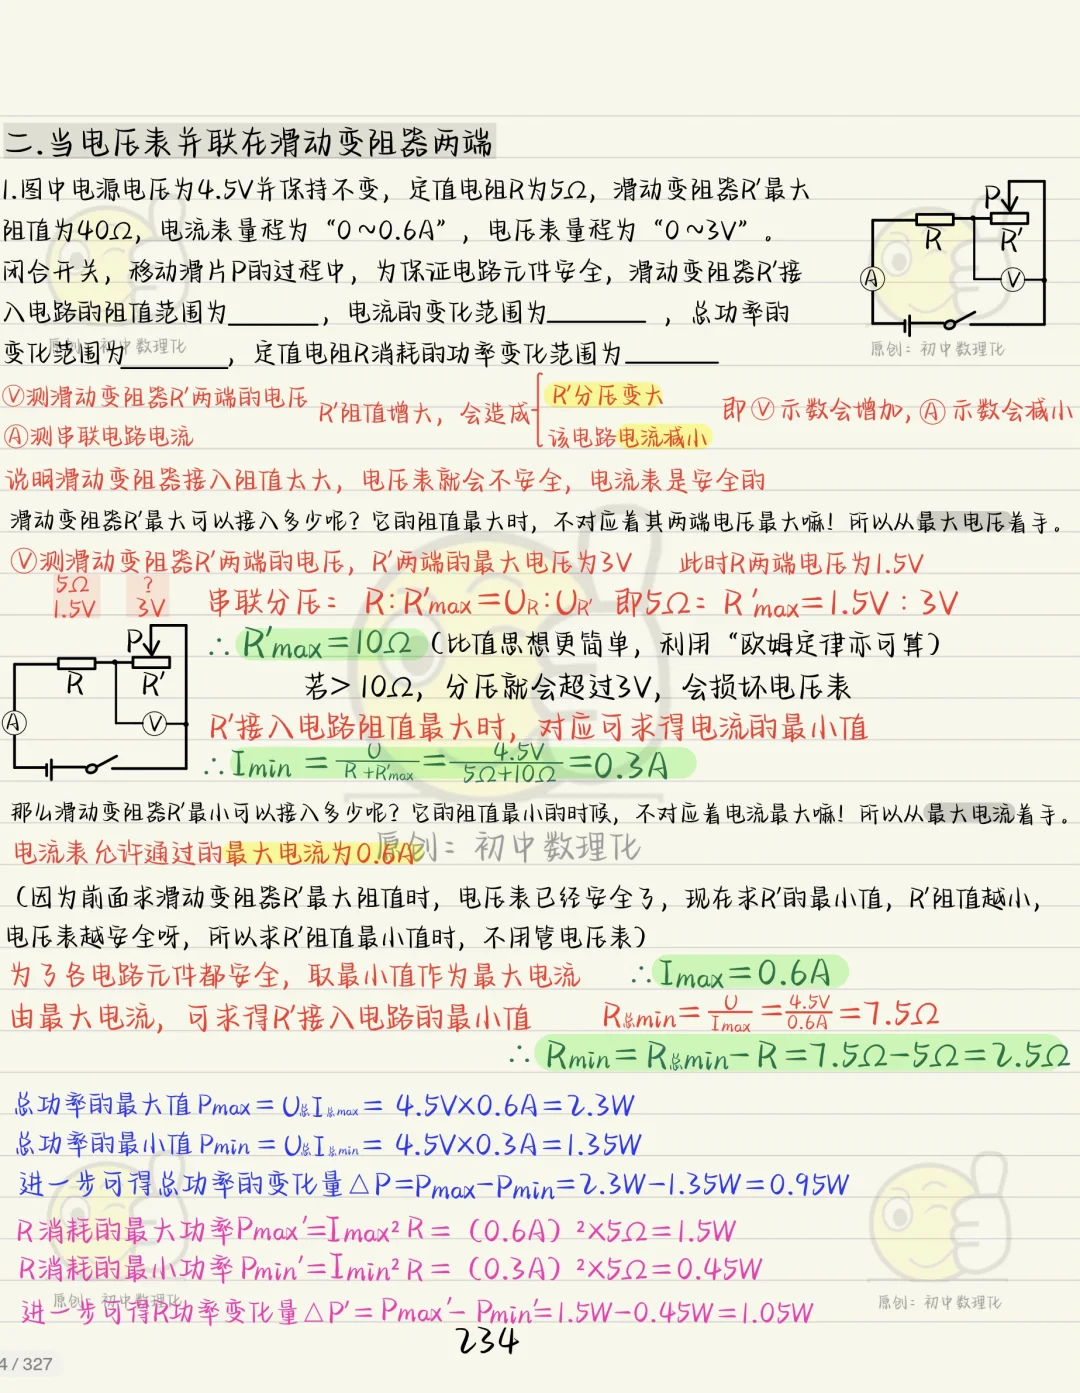 二.当电压表并联在滑动变阻器两端
1.图中电源电压为4.5V并保持不变，定值电阻R为5Ω，滑动变阻器R′最大
阻值为40Ω，电流表量程为“0~0.6A”，电压表量程为“0~3V”。
闭合开关，移动滑片P的过程中，为保证电路元件安全，滑动变阻器R′接
入电路的阻值范围为______，电流的变化范围为______，总功率的
变化范围为______，定值电阻R消耗的功率变化范围为______
P
R
R′
A
V
原创：初中数理化
原创：初中数理化
Ⓥ测滑动变阻器R′两端的电压
Ⓐ测串联电路电流
R′阻值增大，会造成
R′分压变大
该电路电流减小
即Ⓥ示数会增加，Ⓐ示数会减小
说明滑动变阻器接入阻值太大，电压表就会不安全，电流表是安全的
滑动变阻器R′最大可以接入多少呢？它的阻值最大时，不对应着其两端电压最大嘛！所以从最大电压着手。
Ⓥ测滑动变阻器R′两端的电压，R′两端的最大电压为3V 此时R两端电压为1.5V
5Ω ?
1.5V 3V
串联分压：R:R′max=UR:UR′ 即5Ω：R′max=1.5V：3V
∴R′max=10Ω（比值思想更简单，利用“欧姆定律亦可算）
若>10Ω，分压就会超过3V，会损坏电压表
P
R
R′
A
V
R′接入电路阻值最大时，对应可求得电流的最小值
∴Imin=U/(R+R′max)=4.5V/(5Ω+10Ω)=0.3A
那么滑动变阻器R′最小可以接入多少呢？它的阻值最小的时候，不对应着电流最大嘛！所以从最大电流着手。
电流表允许通过的最大电流为0.6A
原创：初中数理化
（因为前面求滑动变阻器R′最大阻值时，电压表已经安全了，现在求R′的最小值，R′阻值越小，
电压表越安全呀，所以求R′阻值最小值时，不用管电压表）
为了各电路元件都安全，取最小值作为最大电流 ∴Imax=0.6A
由最大电流，可求得R′接入电路的最小值 R总min=U/Imax=4.5V/0.6A=7.5Ω
∴Rmin=R总min-R=7.5Ω-5Ω=2.5Ω
总功率的最大值Pmax=U总I总max=4.5V×0.6A=2.3W
总功率的最小值Pmin=U总I总min=4.5V×0.3A=1.35W
进一步可得总功率的变化量△P=Pmax-Pmin=2.3W-1.35W=0.95W
R消耗的最大功率Pmax′=Imax²R=（0.6A）²×5Ω=1.5W
R消耗的最小功率Pmin′=Imin²R=（0.3A）²×5Ω=0.45W
进一步可得R功率变化量△P′=Pmax′-Pmin′=1.5W-0.45W=1.05W
原创：初中数理化
原创：初中数理化
234
4 / 327